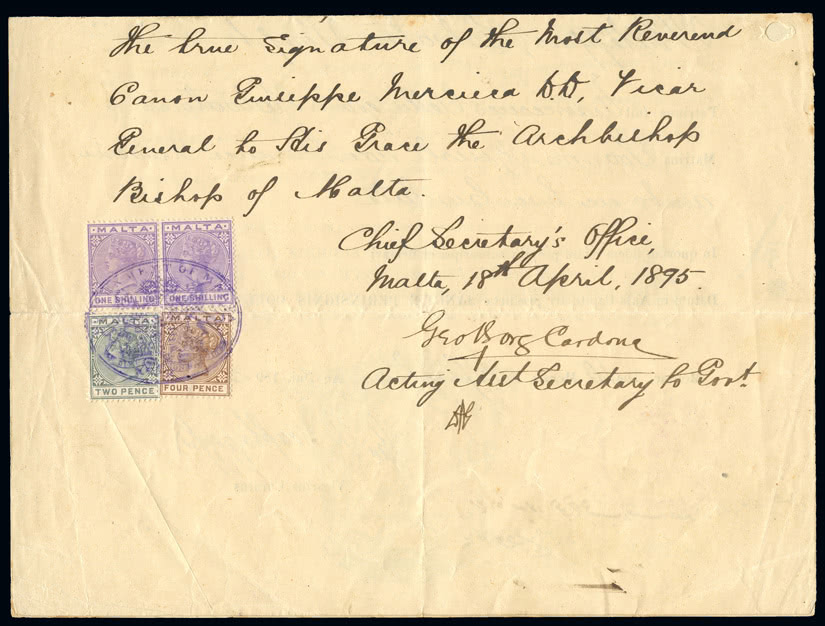 the true Signature of the Most Reverend
Canon Giuseppe Mercieca D.D, Vicar
General to His Grace the Archbishop
Bishop of Malta.
Chief Secretary's Office,
Malta, 18th April, 1895.
Geo Borg Cardona
Acting Asst Secretary to Govt.
MALTA MALTA
ONE SHILLING ONE SHILLING
MALTA MALTA
TWO PENCE FOUR PENCE